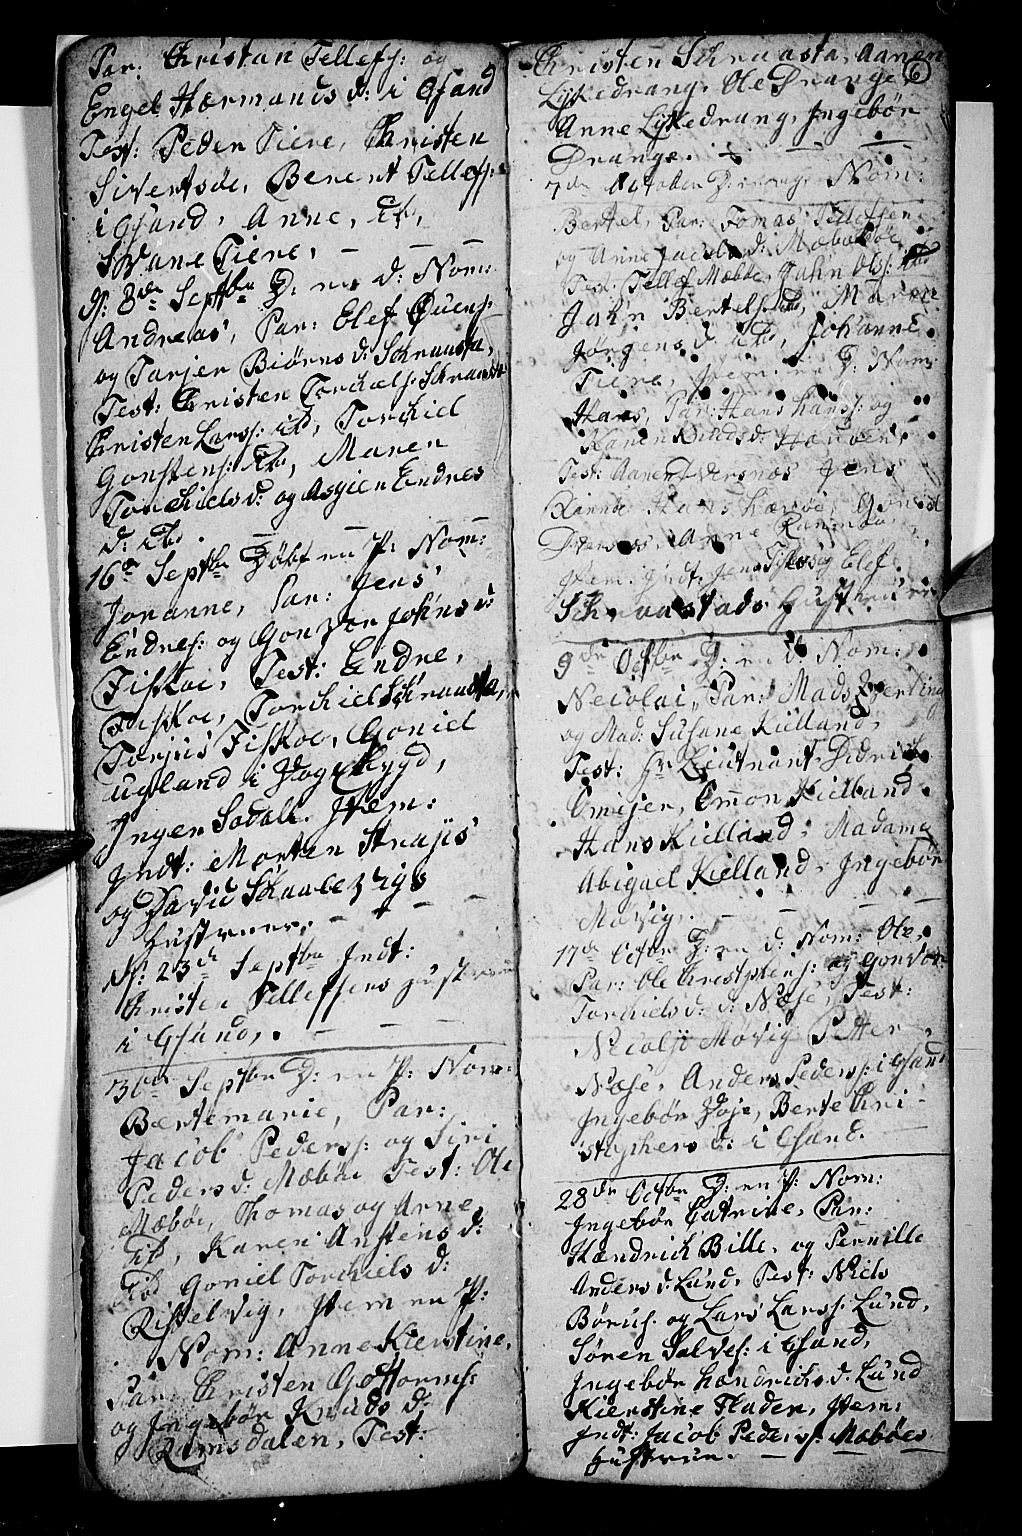 Par: Christan Tellefs: og
Engel Hærmands d: i Ghsand
Test: Peder Tiere, Christen
Sivertsøe, Berent Tellefs:
i Ghsand, Anne, ibd,
Swane Tiere, — — —
d: 8de Septbr D: en d: Nom:
Andreas, Par: Elef Øuens:
og Tarjer Biørns d: Schraasta,
Test: Christen Torchels: Schraasta
Christen Larss: ibd, Torchiel
Gonstens: ibd, Maren
Torchiels d: og Asgien Endres
d: ibd. — —
16de Septbr Døbt en P: Nom:
Joranne, Par: Jens
Endres: og Gonvor Johns d:
Fiskoe, Test: Endre,
Fiskoe, Torchiel Schraasta,
Torjus Fiskoe, Goniel
Ugland i Vogsbygd,
Inger Sodall. Item:
Indt: Morten Strajis
og David Skaalevigs
hustruer. — + — —
d: 23de Septbr Indt:
Christen Tellefsens hustrue
i Ghsand, — — —
30te Septbr D: en P: Nom:
Bertemarie, Par:
Jacob Peders: og Siri
Peders d: Mæbøe Test: Ole
Mæbøe, Thomas og Anne
ibd, Karen Anstens d:
ibd Goniel Torchiels d:
Ristelvig, Item en P:
Nom: Anne Kierstine,
Par: Christen Gottorms:
og Ingebør Knuds d:
Ramsdalen, Test:
Christen Schraasta, Aanen
6
Lykedrang, Ole Drange
Anne Lykedrang, Ingebør
Drange. + — —
7de October D: en Nom:
Bertel, Par: Tomas Tellefsen
og Anne Jacobs d: Mæboesøe
Test: Tellef Mæbøe, John Ols: ibd
John Bertels: ibd, Maren
Jørgens d: ibd, Johanne
Tiere, Item en D: Nom:
Hans, Par: Hans Hanss: og
Karen Knuds d: Haaben,
Test: Aanen Dversnæs Jens
Hans Goniel
Dversnæs, Anne
Item Indt: Jens og Elef
Schraastads Hustruer
9de Octbr D: en d: Nom:
Necolai, Par: Mads
og Mad: Susane Kielland,
Test: Hr Lieutnant Didrich
Omsjer, Omon Kielland
Hans Kielland, Madame
Abigael Kielland, Ingebør
Møvig. — — — —
17de Octbr D: en d: Nom: Ole,
Par: Ole Christphens: og Gonvor
Torchiels d: d: Næse, Test:
Necolai Møvig Petter
Næse, Anders Peders: i Ghsand
Ingebør Voje, Berte Chri-
stophers d: i Ghsand.
28de Octbr D: en P: Nom:
Ingebør Catrine, Par:
Hændrich Bille, og Pernille
Anders d: Lund, Test: Niels
Børus: og Lars Larss: Lund,
Søren Salves: i Ghsand,
Ingebør Hændrichs d. Lund
Kierstine Fladen, Item:
Indt: Jacob Peders: Mæbøes
hustrue. —